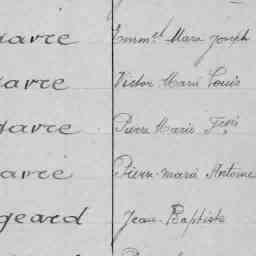 avre Emm.el Marie Joseph
avre Victor Marie Louis
avre Pierre Marie F.çois
avre Pierre-marie Antoine
geard Jean-Baptiste